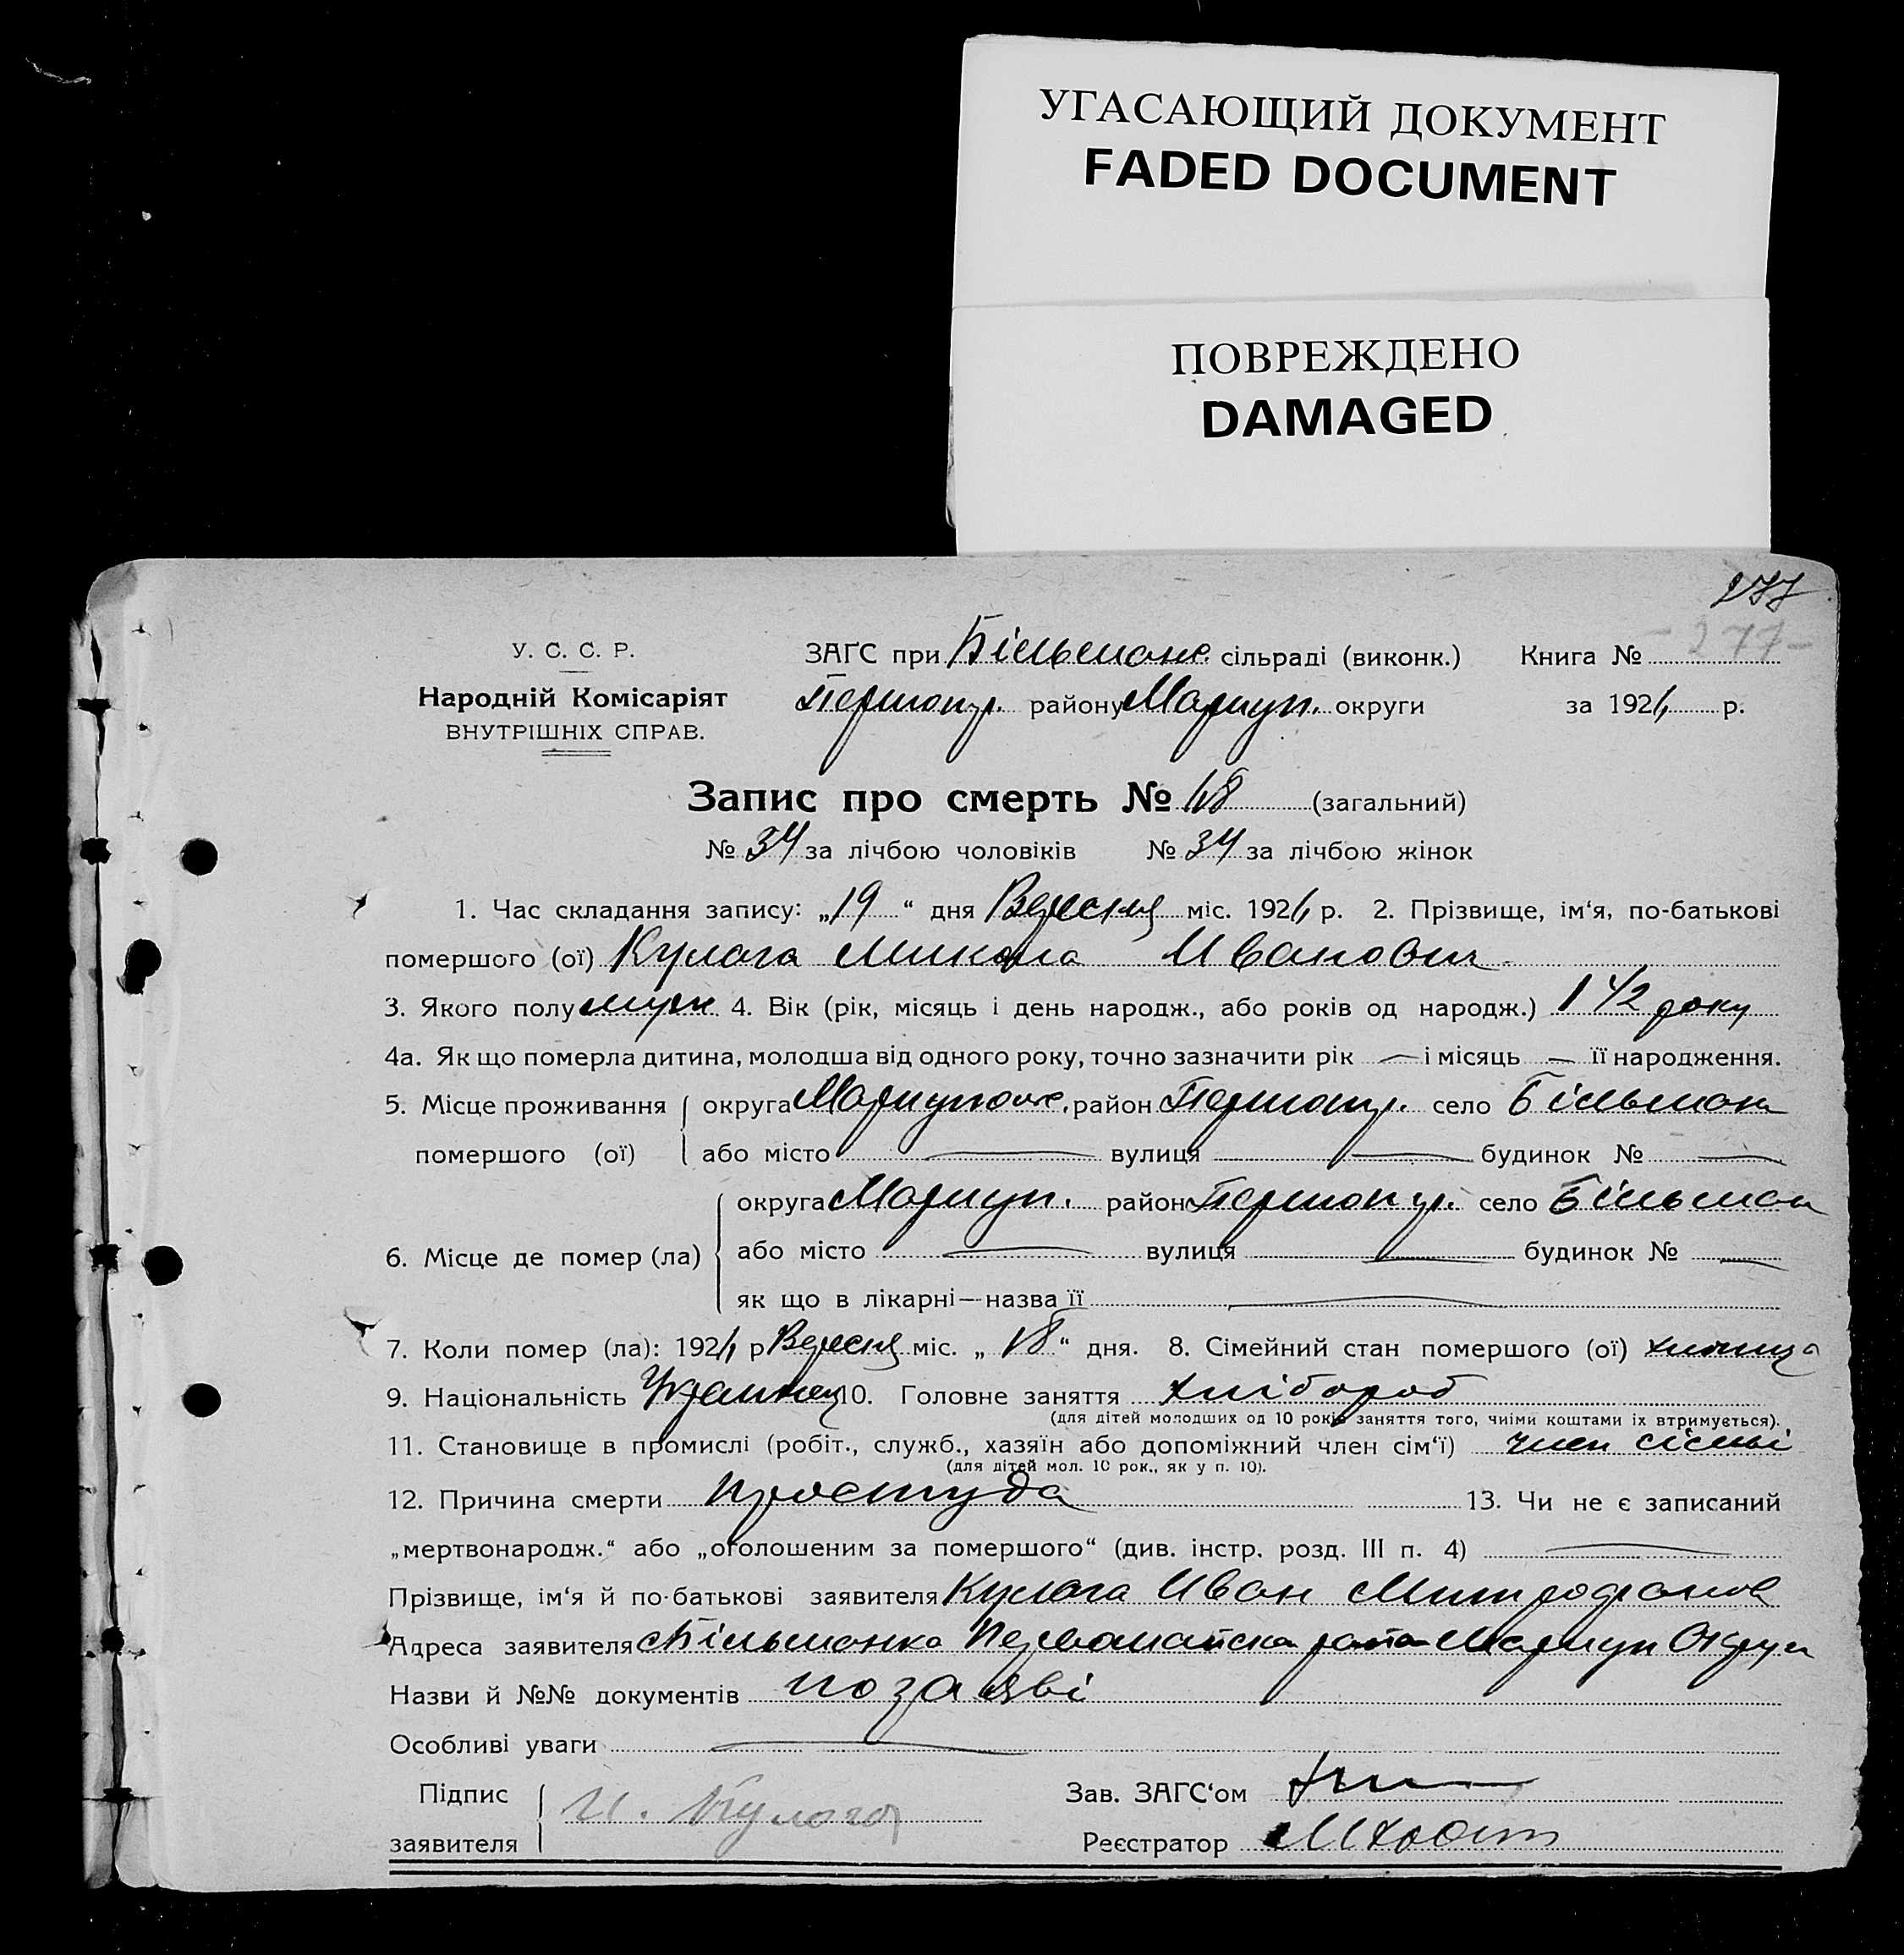 УГАСАЮЩИЙ ДОКУМЕНТ
FADED DOCUMENT
ПОВРЕЖДЕНО
DAMAGED
277
- 277 -
У. С. С. Р.
Народній Комісаріят
ВНУТРІШНІХ СПРАВ.
ЗАГС при Більманс. сільраді (виконк.) Книга №
району Маріуп. округи за 192 р.
Запис про смерть № (загальний)
№ 34 за лічбою чоловіків № 34 за лічбою жінок
1. Час складання запису: „19“ дня Вересня міс. 192 р. 2. Прізвище, ім‘я, по-батькові
помершого (ої) Кулага Микола Иванович
3. Якого полу муж. 4. Вік (рік, місяць і день народж., або років од народж.) 1 1/2 року
4а. Як що померла дитина, молодша від одного року, точно зазначити рік — і місяць — її народження.
5. Місце проживання округа район село Більманка
помершого (ої) або місто — вулиця — будинок № —
округа Маріуп. район село Більман
6. Місце де помер (ла) або місто — вулиця — будинок № —
як що в лікарні—назва її —
7. Коли помер (ла): 192 р Вересня міс. „18“ дня. 8. Сімейний стан помершого (ої)
9. Національність Українец 10. Головне заняття хлібороб
(для дітей молодших од 10 років заняття того, чиїми коштами їх втримується).
11. Становище в промислі (робіт., служб., хазяїн або допоміжний член сім‘ї) член сісмьі
(для дітей мол. 10 рок., як у п. 10).
12. Причина смерти простуда 13. Чи не є записаний
„мертвонародж.“ або „оголошеним за помершого“ (див. інстр. розд. III п. 4) —
Прізвище, ім‘я й по-батькові заявителя Кулага Иван Митрофанов
Адреса заявителя Більманка Маріуп Округи
Назви й №№ документів по заяві
Особливі уваги —
Підпис заявителя И. Кулага
Зав. ЗАГС‘ом
Реєстратор